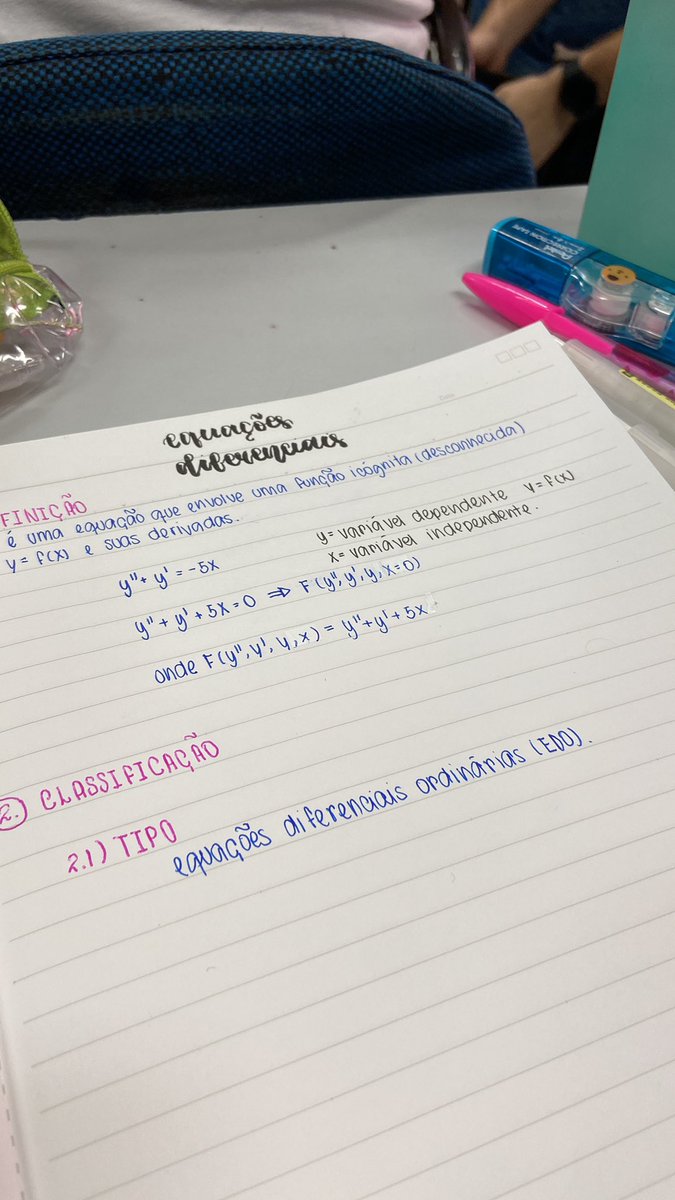 equações
diferenciais
FINIÇÃO
é uma equação que envolve uma função icógnita (desconhecida)
y = f(x) e suas derivadas.
y = variável dependente y = f(x)
x = variável independente.
y'' + y' = -5x
y'' + y' + 5x = 0 ⇒ F(y'', y', y, x = 0)
onde F(y'', y', y, x) = y'' + y' + 5x
2. CLASSIFICAÇÃO
2.1) TIPO
equações diferenciais ordinárias (EDO).
Pentel
CORRECTION TAPE